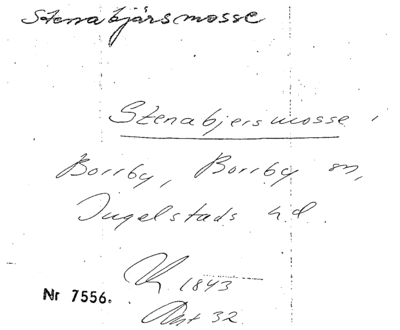 Stenabjärsmosse
Stenabjersmosse,
Borrby, Borrby sn,
Ingelstads hd.
1843
Akt 32
Nr 7556.